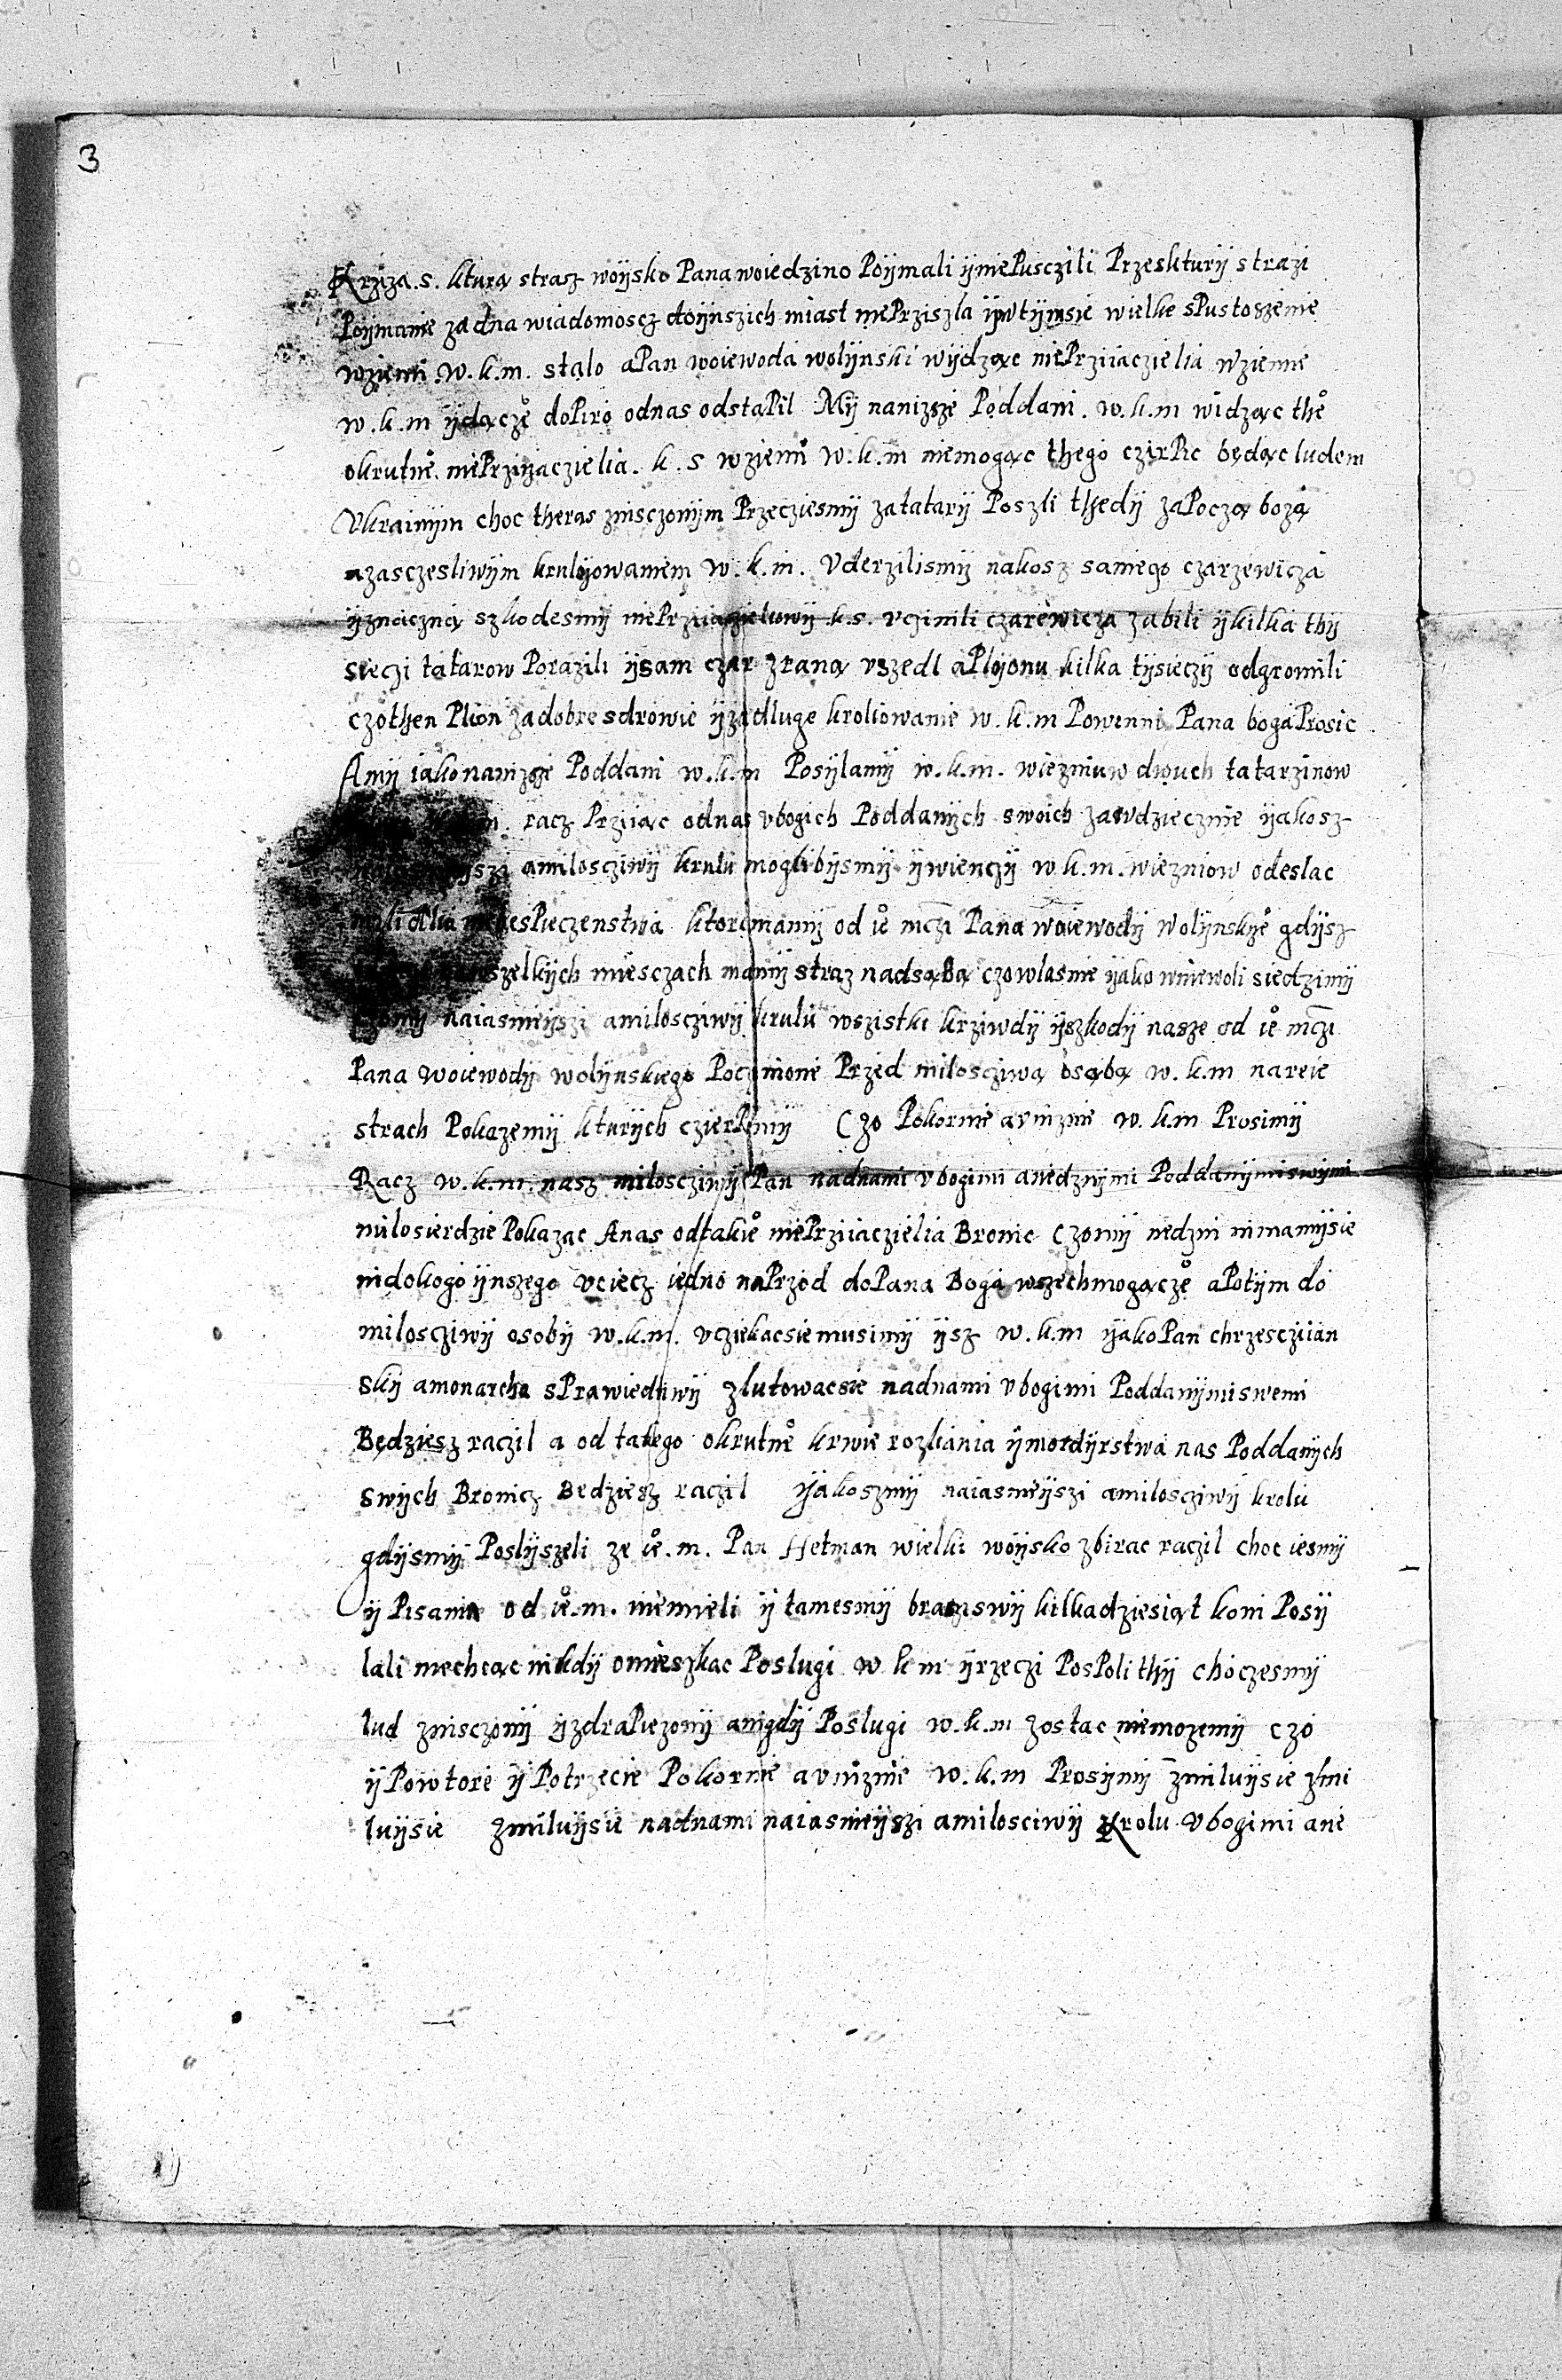 3
Krziza. s. ktura strasz woÿsko Pana woiedzino Poÿmali ÿniePusczili Przeskturÿ strazi
Poÿmanie zadna wiadomoscz doÿnszich miast niePrziszla ÿwtÿmsie wielke sPustoszenie
wziemi. w. k. m. stalo aPan woiewoda wolÿnski wÿdząc niePrziiaczielia wziemie
w. k. m ÿdącze͛ doPiro odnas odstaPil Mÿ nanizsze Poddani. w. k. m widząc the͛
okrutne͛. niePrziiaczielia. k. s wziemi w. k. m niemogąc thego czirPic będąc ludem
Vkrainÿm choc theras znisczonÿm Przecziesmÿ zatatarÿ Poszli thedÿ zaPoczą bozą
azasczesliwÿm krulÿowaniem w. k. m. Vderzilismÿ nakosz samego czarzewicza
ÿznaczną szkodesmÿ niePrziiazieluwÿ k. s. vczinili czarewicza zabili ÿkilka thÿ
sieczi tatarow Porazili ÿsam czar zraną vszedl aPlÿonu kilka tÿsieczÿ odgromili
czothen Plion zadobre sdrowie ÿzadluge kroliowanie w. k. m Powinni Pana boga Prosic
Amÿ iako nanizsze Poddani w. k. m Posÿlamÿ w. k. m. wiezniuw dwuch tatarzinow
racz Prziiąc odnas vbogich Poddanÿch swoich zawdziecznie ÿakosz
amilosciziwÿ krulu moglibÿsmÿ ÿwienczÿ w. k. m. wiezniow odeslac
ktore mamÿ od ie͛ mczi Pana woiewodÿ wolÿnskie͛ gdÿsz
miesczach mamÿ straz nadsąbą czowlasnie ÿako wniewoli siedzimÿ
naiasnieÿszi amilosciziwÿ krulu wszistki krziwdÿ ÿszkodÿ nasze od ie͛ mczi
Pana woiewodÿ wolÿnskiego Poczinione Przed milosciziwą osąbą w. k. m nareie
strach Pokazemÿ kturÿch czierPimÿ Czo Pokornie avniznie w. k. m Prosimÿ
Racz w. k. m. nasz milosciziwÿ Pan nadnami vbogimi anedznÿmi Poddanÿmi swÿmi
milosierdzie Pokazac Anas odtakie͛ niePrziiaczielia Bronic Czomÿ nedzni nimamÿsie
nidokogo ÿnszego vciecz iedno naPrzod doPana Boga wszechmogącze͛ aPotÿm do
milosciziwÿ osobÿ w. k. m. vcziekacsie musimÿ ÿsz w. k. m ÿakoPan chrzescziian
skÿ amonarcha sPrawiedliwÿ zlutowacsie nadnami vbogimi Poddanÿmi swemi
Będziesz raczil a od takego okrutne͛ krwie rozliania ÿmordÿrstwa nas Poddanÿch
swÿch Bronicz Bedziesz raczil ÿakoszmÿ naiasnieÿszi amilosciziwÿ krolu
gdÿsmÿ Poslÿszeli ze ie͛. m. Pan Hetman wielki woÿsko zbirac raczil choc iesmÿ
ÿ Pisania od ie͛. m. niemieli ÿ tamesmÿ kilkadziesiąt koni Posÿ
lali niechcąc nikdÿ omieszkac Poslugi w. k m ÿrzeczi PosPolithÿ choczesmÿ
lud znisczonÿ ÿzdraPiezonÿ anigdÿ Poslugi w. k. m zostac niemozemÿ czo
ÿ Powtore ÿ Potrzecie Pokornie avniznie w. k. m Prosÿmÿ zmiluÿsie zmi
luÿsie zmiluÿsie nadnami naiasnieÿszi amilosciwÿ Krolu vbogimi ane